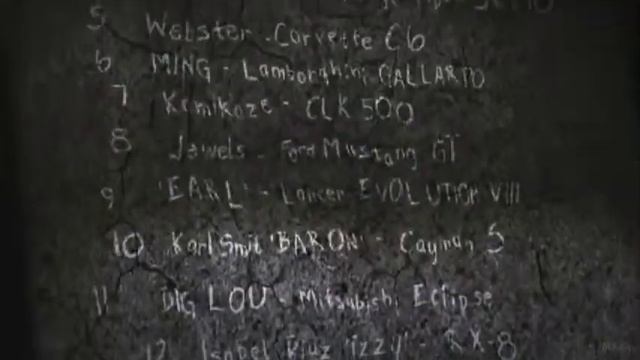 5 Webster - Corvette C6
6 MING - Lamborghini GALLARDO
7 Kamikaze - CLK 500
8 Jewels - Ford Mustang GT
9 'EARL' - Lancer EVOLUTION VIII
10 Karl Smit 'BARON' - Cayman S
11 BIG LOU - Mitsubishi Eclipse
12 Isabel Diaz 'izzy' - RX-8